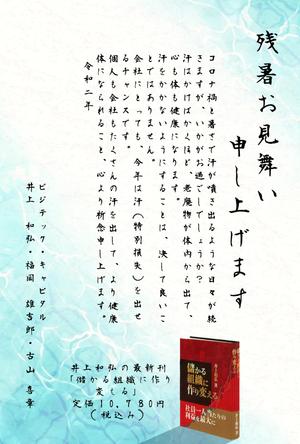 残暑お見舞い
申し上げます
コロナ禍と暑さで汗が噴き出しそうな日々が続
きますが、いかがお過ごしでしょうか?
汗はかけばかくほど、老廃物が体内から出て、
心も体も健康になります。
汗をかかないようにすることは、決して良いこ
とではありません。
会社にとっても、今年は汗(特別損失)を出せ
るチャンスです。
個人も会社もたくさんの汗を出して、より健康
体になられること、心より祈念申し上げます。
令和二年
ビジテック・キャピタル
井上 和弘・福岡 雄吉郎・古山 喜章
井上和弘の最新刊
「儲かる組織に作り
変える」
定価10,780円
(税込み)
儲かる
組織に
作り変える
社員一人当たりの
利益を最大に